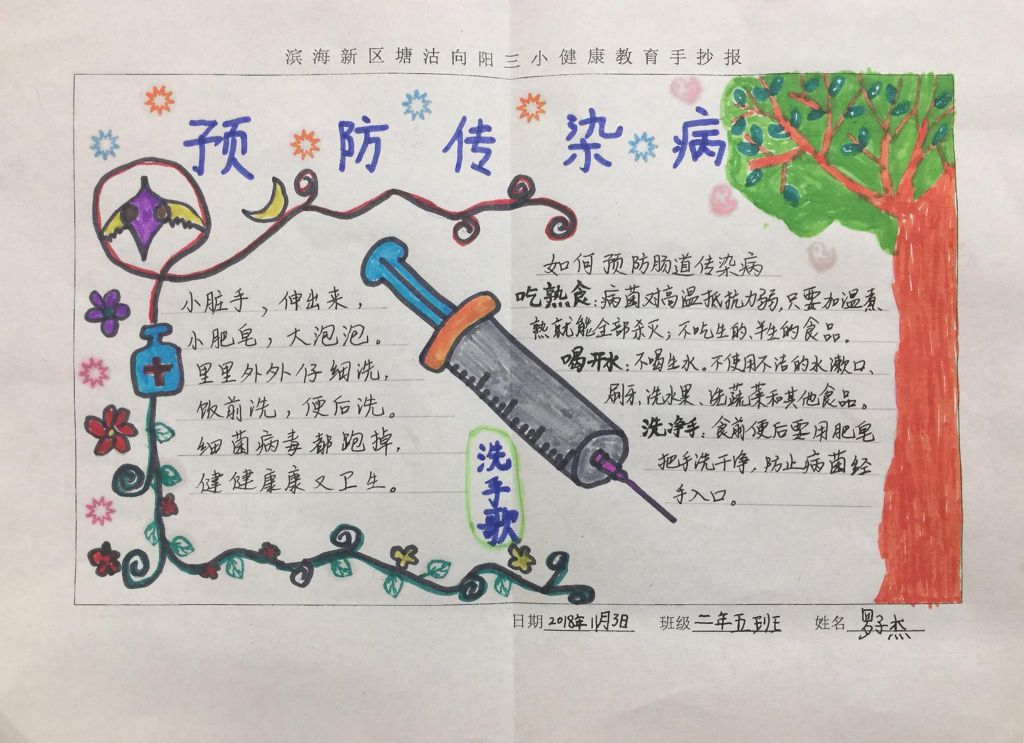 滨海新区塘沽向阳三小健康教育手抄报
预防传染病
小脏手，伸出来，
小肥皂，大泡泡。
里里外外仔细洗，
饭前洗，便后洗。
细菌病毒都跑掉，
健健康康又卫生。
洗手歌
如何预防肠道传染病
吃熟食：病菌对高温抵抗力弱，只要加温煮
熟就能全部杀灭；不吃生的、半生的食品。
喝开水：不喝生水。不使用不洁的水漱口、
刷牙、洗水果、洗蔬菜和其他食品。
洗净手：食前便后要用肥皂
把手洗干净，防止病菌经
手入口。
日期 2018年11月3日 班级 二年五班 姓名 罗子杰